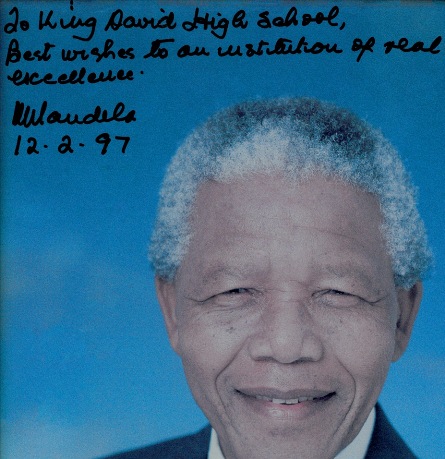 To King David High School,
Best wishes to an institution of real
excellence.
NMandela
12.2.97